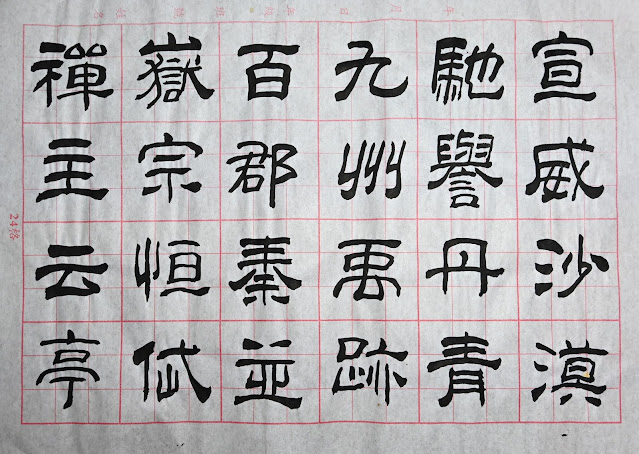 宣威沙漠
馳譽丹青
九州禹跡
百郡秦並
嶽宗恒岱
禪主云亭
24格